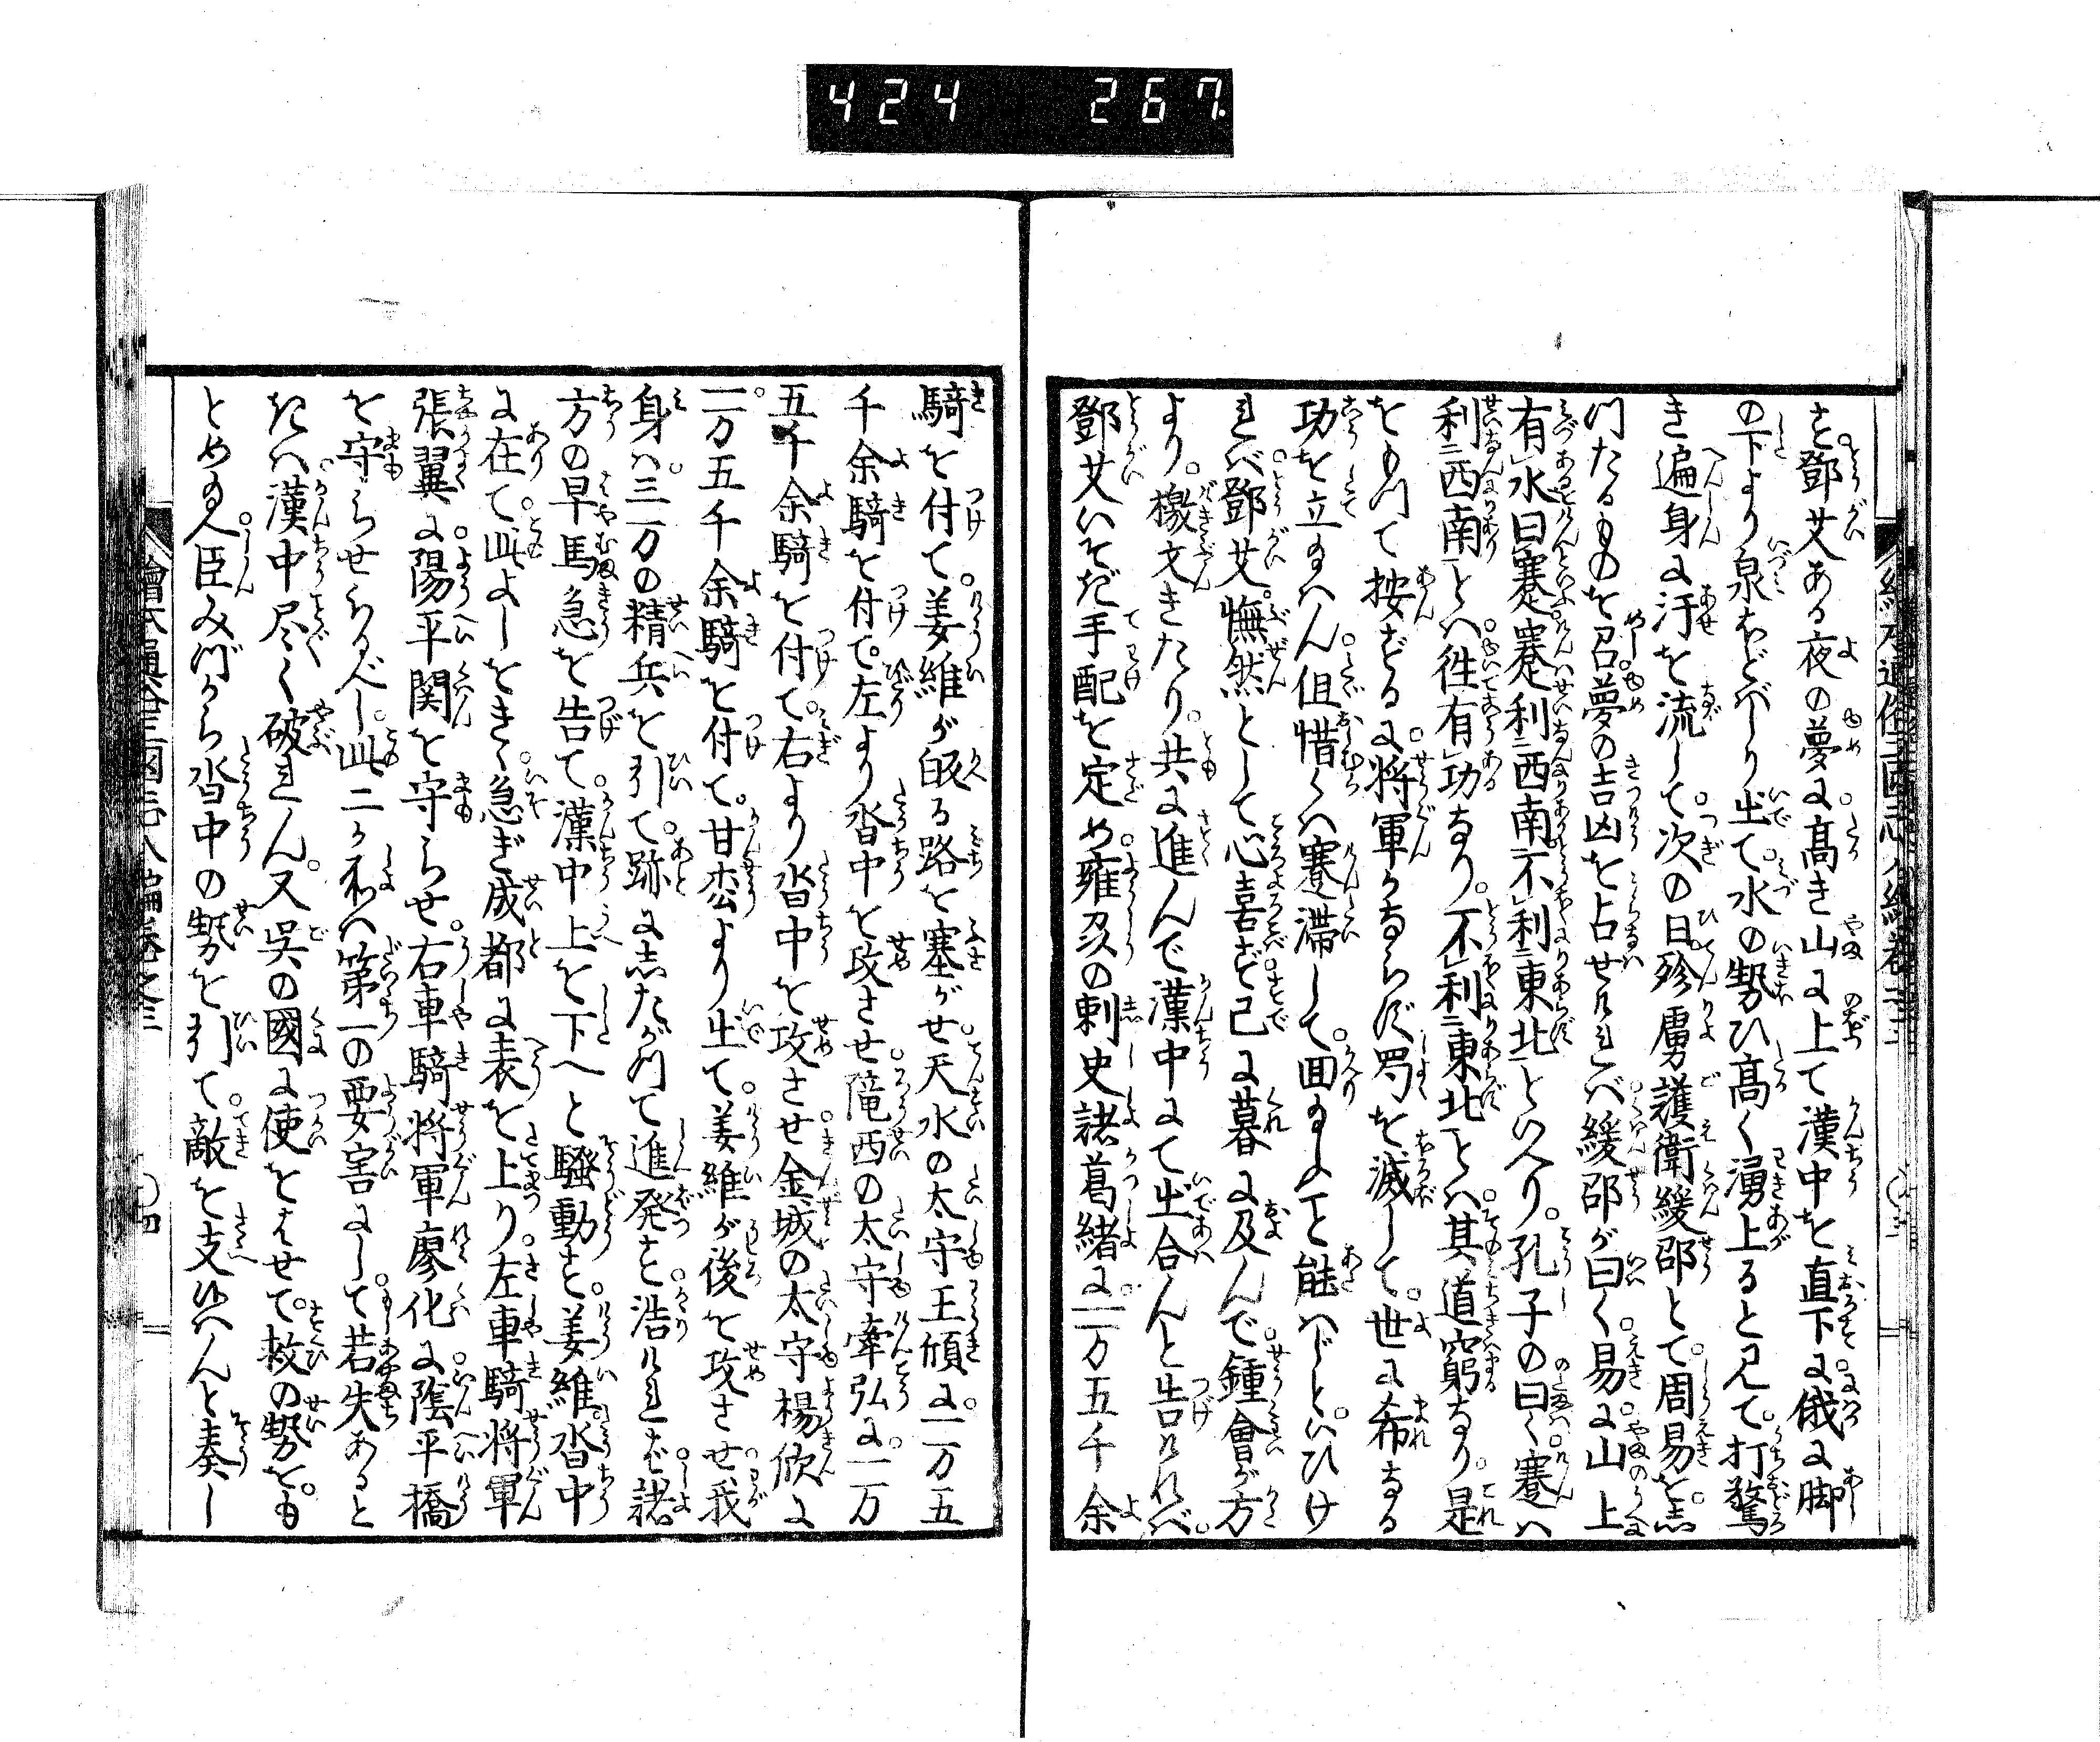 424 267
さ鄧艾ある夜の夢に高き山に上て漢中を直下に俄に脚
の下より泉ほどばしり出て水の勢ひ高く湧上ると見て打驚
き遍身に汗を流して次の日殄虜護衛緩邵とて周易を志
つたるものを召夢の吉凶を占せければ緩邵が曰く易に山上
有水曰蹇蹇利西南不利東北といへり孔子の曰く蹇ハ
利西南とハ徃有功なり不利東北とハ其道窮なり是
をもつて按ずるに将軍かならず蜀を滅して世に希なる
功を立玉ハん但惜くハ蹇滞して囬玉ふこと能ハじといひけ
れバ鄧艾憮然として心喜ず已に暮に及んで鍾會が方
より檄文きたり共に進んで漢中にて出合んと告ければ
鄧艾いそぎ手配を定め雍刕の刺史諸葛緒に一万五千余
騎を付て姜維が皈る路を塞がせ天水の太守王頎に一万五
千余騎を付て左より沓中を攻させ隴西の太守牽弘に一万
五千余騎を付て右より沓中を攻させ金城の太守楊欣に
一万五千余騎を付て甘松より出て姜維が後を攻させ我
身ハ三万の精兵を引て跡に志たがつて進発さ浩りれさ諸
方の早馬急を告て漢中上を下へと騒動さ姜維沓中
に在て此よしをきゝ急ぎ成都に表を上り左車騎将軍
張翼に陽平関を守らせ右車騎将軍廖化に陰平橋
を守らせらるべし此二か所ハ第一の要害にして若失あると
きハ漢中尽く破れん又呉の國に使をはせて救の勢をも
とめ玉へ臣みづから沓中の勢を引て敵を支候ハんと奏し